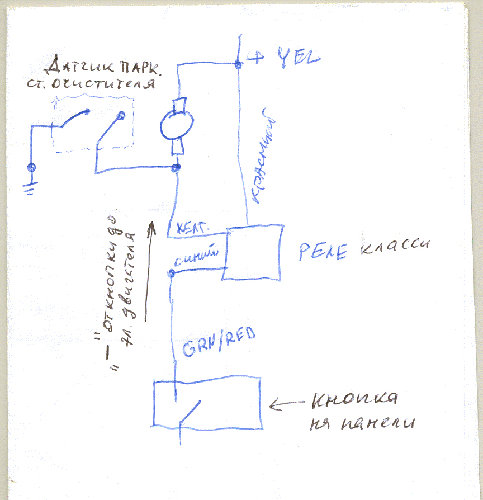 Датчик парк.
ст. очистителя
+ YEL
красный
желт.
синий
реле класси
"—" от кнопки до
эл. двигателя
GRN/RED
кнопка
на панели